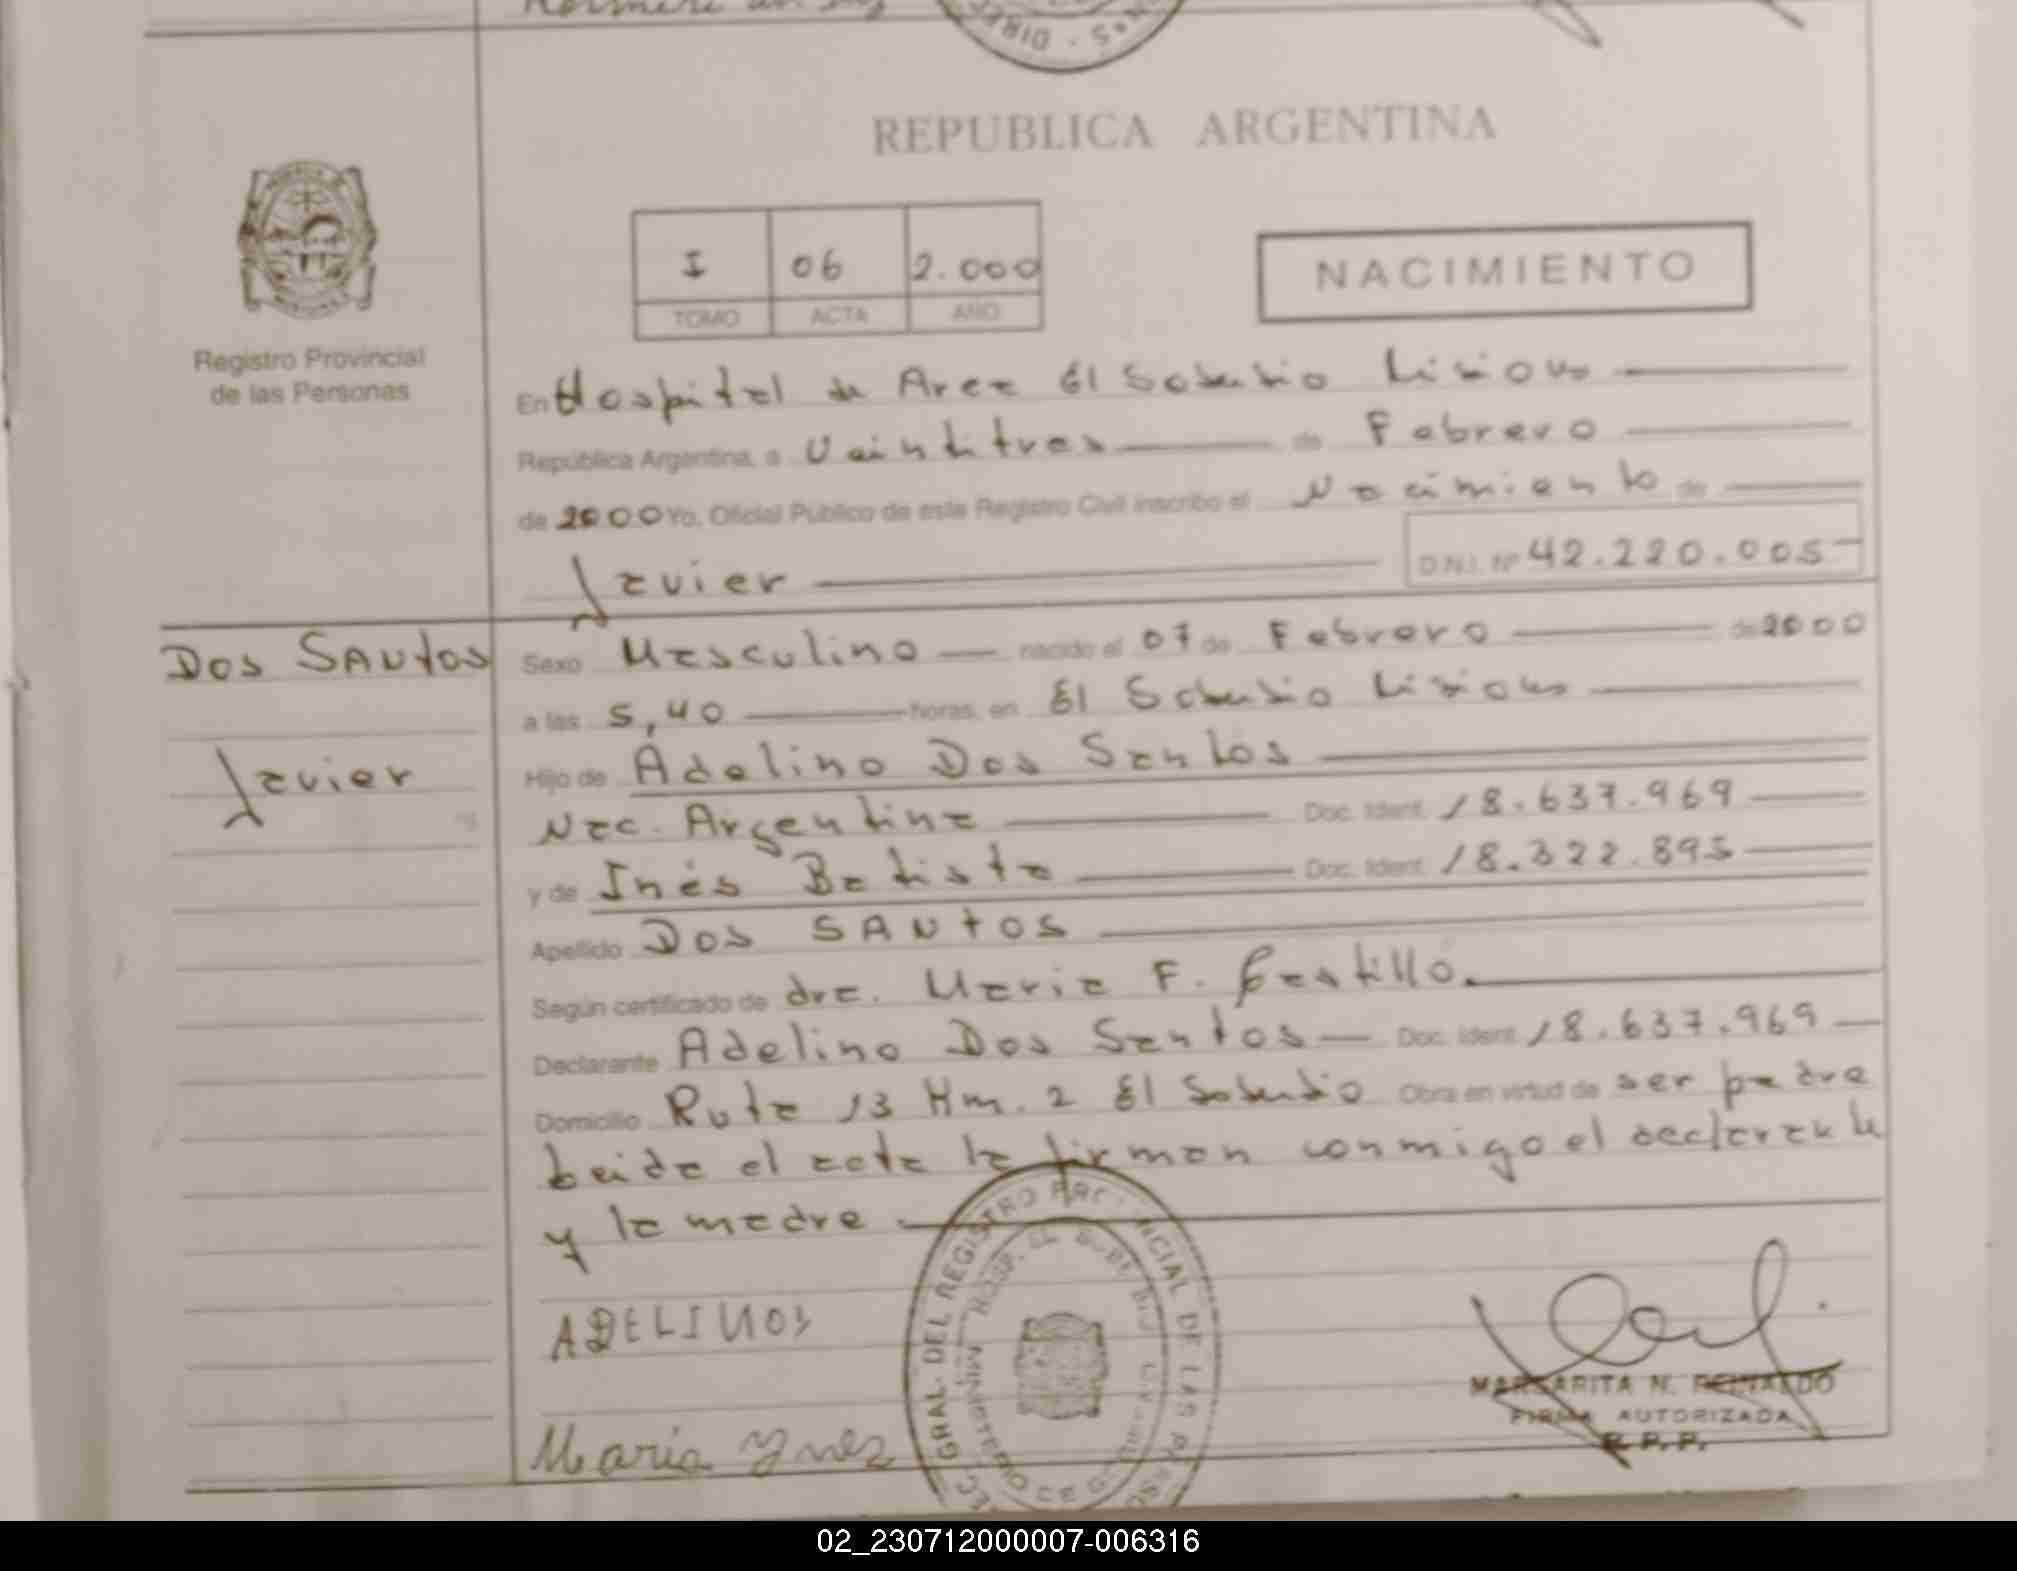 REPUBLICA ARGENTINA
I 06 2.000
TOMO ACTA AÑO
NACIMIENTO
Registro Provincial
de las Personas
En Hospital de Area El Soberbio Misiones
República Argentina, a Veintitres de Febrero
de 2000 Yo, Oficial Público de este Registro Civil inscribo el Nacimiento de
Javier D.N.I. Nº 42.220.005
Dos SANtos
Javier
Sexo Masculino nacido el 07 de Febrero de 2000
a las 5,40 horas, en El Soberbio Misiones
Hijo de Adelino Dos Santos
Nac. Argentina Doc. Ident. 18.637.969
y de Inés Batista Doc. Ident. 18.322.895
Apellido Dos SANtos
Según certificado de dra. Maria F. Castillo.
Declarante Adelino Dos Santos Doc. Ident. 18.637.969
Domicilio Ruta 13 Km. 2 El Soberbio Obra en virtud de ser padre
Leida el acta la firman conmigo el declarante
y la madre
ADELINOS
Maria Ynez
GRAL. DEL REGISTRO PROVINCIAL DE LAS PERSO
MARGARITA N. REINALDO
FIRMA AUTORIZADA
R. P. P.
02_230712000007-006316